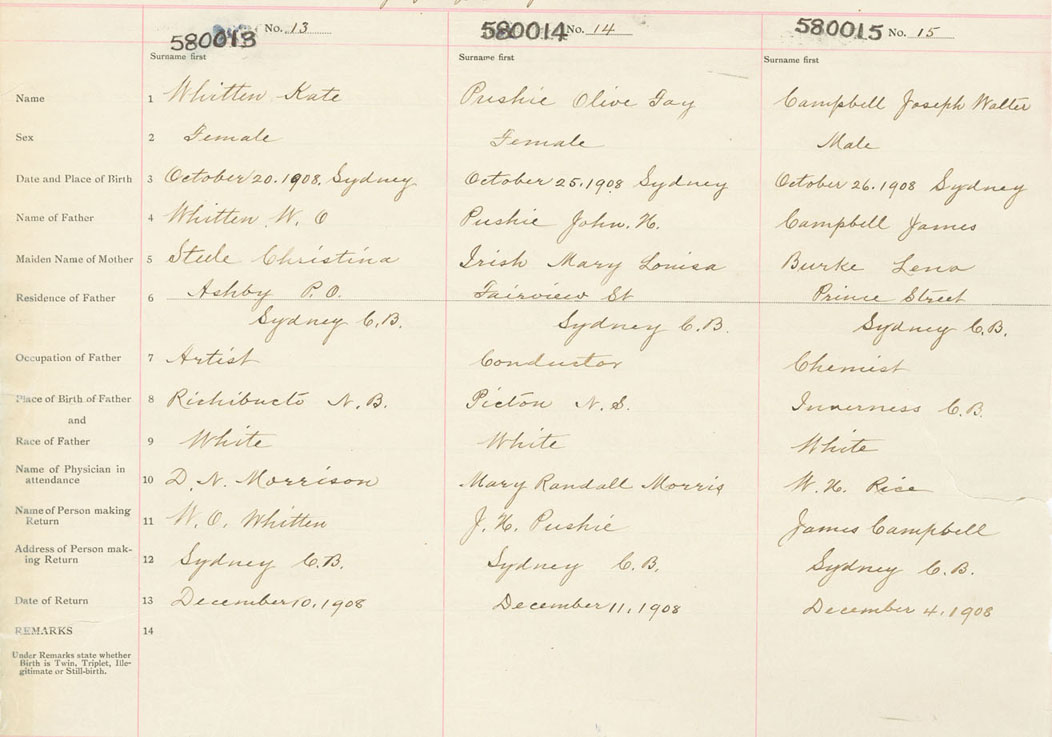 580013 No. 13 580014 No. 14 580015 No. 15
Surname first Surname first Surname first
Name 1 Whitten Kate Pushie Olive Fay Campbell Joseph Walter
Sex 2 Female Female Male
Date and Place of Birth 3 October 20.1908. Sydney October 25.1908 Sydney October 26.1908 Sydney
Name of Father 4 Whitten W. O Pushie John. H. Campbell James
Maiden Name of Mother 5 Steele Christina Irish Mary Louisa Burke Lena
Residence of Father 6 Ashby P.O. Fairview St Prince Street
Sydney C.B. Sydney C.B. Sydney C.B.
Occupation of Father 7 Artist Conductor Chemist
Place of Birth of Father 8 Richibucto N.B. Picton N.S. Inverness C.B.
and
Race of Father 9 White White White
Name of Physician in
attendance 10 D. N. Morrison Mary Randall Morris W. H. Rice
Name of Person making
Return 11 W. O. Whitten J. H. Pushie James Campbell
Address of Person mak-
ing Return 12 Sydney C.B. Sydney C.B. Sydney C.B.
Date of Return 13 December 10, 1908 December 11, 1908 December 4, 1908
REMARKS 14
Under Remarks state whether
Birth is Twin, Triplet, Ille-
gitimate or Still-birth.